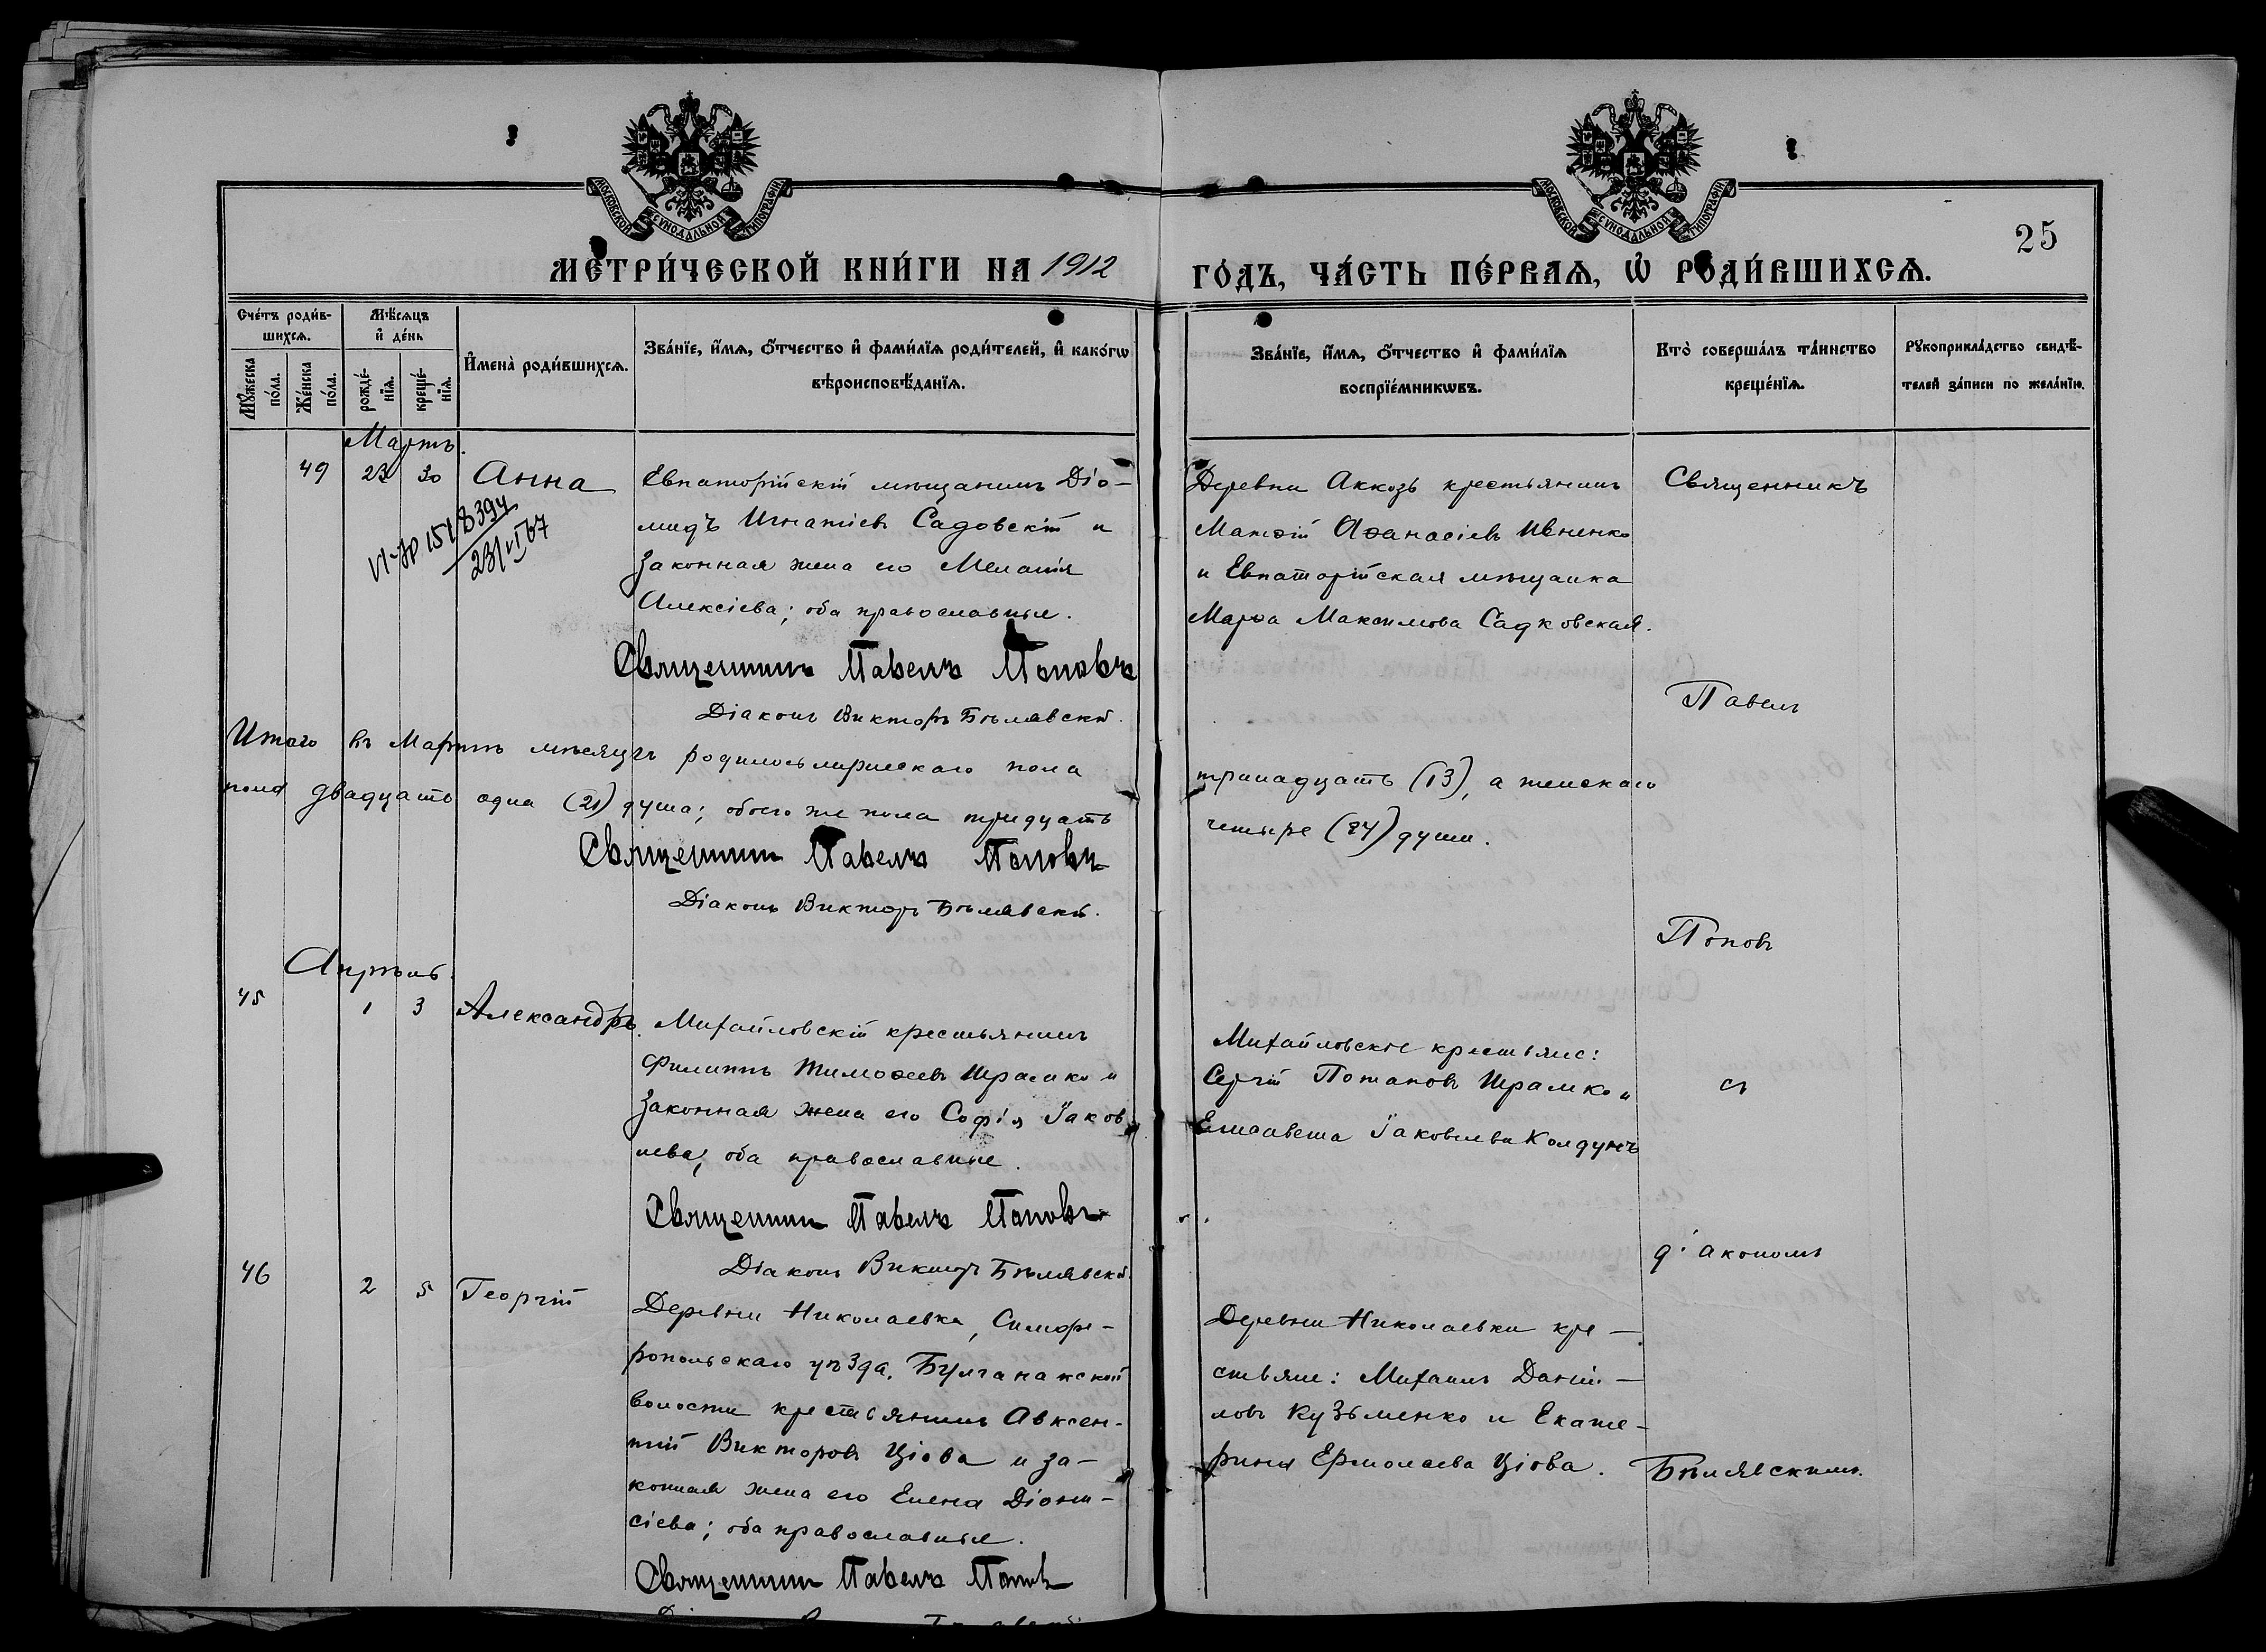 МОСКОВСКОЙ СѴНОДАЛЬНОЙ ТИПОГРАФІИ
МОСКОВСКОЙ СѴНОДАЛЬНОЙ ТИПОГРАФІИ
25
МЕТРИ́ЧЕСКОЙ КНИ́ГИ НА 1912 ГО́ДЪ, ЧА́СТЬ ПЕ́РВАѦ, Ѡ҆ РОДИ́ВШИХСѦ.
Сче́тъ роди́в-
шихсѧ.
Мꙋ́жеска по́ла.
Же́нска по́ла.
Мѣ́сѧцъ
и҆ де́нь
рожде́-
нїѧ.
креще́-
нїѧ.
И҆мена̀ роди́вшихсѧ.
Зва́нїе, и҆́мѧ, ѻ҆́тчество и҆ фами́лїѧ роди́телей, и҆ како́гѡ
вѣроисповѣ́данїѧ.
Зва́нїе, и҆́мѧ, ѻ҆́тчество и҆ фами́лїѧ
воспрїе́мникѡвъ.
Кто̀ соверша́лъ та́инство
креще́нїѧ.
Рꙋкоприкла́дство свидѣ́-
телей за́писи по жела́нїю.
Мартъ.
49 23 30 Анна
Евпаторійскій мѣщанинъ Діо-
мидъ Игнатіевъ Садовскій и
законная жена его Меланія
Алексіева; оба православные.
Священникъ Павелъ Поповъ
Діаконъ Викторъ Бѣлявскій.
Деревни Аккозъ крестьянинъ
Матѳій Аѳанасіевъ Ивненко
и Евпаторійская мѣщанка
Марѳа Максимова Садковская.
Священникъ
Павелъ
Поповъ
съ
діакономъ
Бѣлявскимъ.
1518394
23/VI 67
Итого въ Мартѣ мѣсяцѣ родилось мужескаго пола тринадцать (13), а женскаго
пола двадцать одна (21) душа; обоего же пола тридцать четыре (34) души.
Священникъ Павелъ Поповъ
Діаконъ Викторъ Бѣлявскій.
Апрѣль.
45 1 3 Александръ.
Михайловскій крестьянинъ
Филиппъ Тимоѳеевъ Шрамко и
законная жена его Софія Іаков
лева, оба православные.
Священникъ Павелъ Поповъ
Діаконъ Викторъ Бѣлявскій.
Михайловскіе крестьяне:
Сергій Потаповъ Шрамко и
Елисавета Іаковлева Колдунъ
46 2 5 Георгій
Деревни Николаевка, Симфе-
ропольскаго уѣзда, Булганакской
волости крестьянинъ Авксен-
тій Викторовъ Ціова и за-
конная жена его Елена Діони-
сіева; оба православные.
Священникъ Павелъ Поповъ
Деревни Николаевки кре-
стьяне: Михаилъ Даніи-
ловъ Кузьменко и Екате-
рина Ермолаева Ціова.